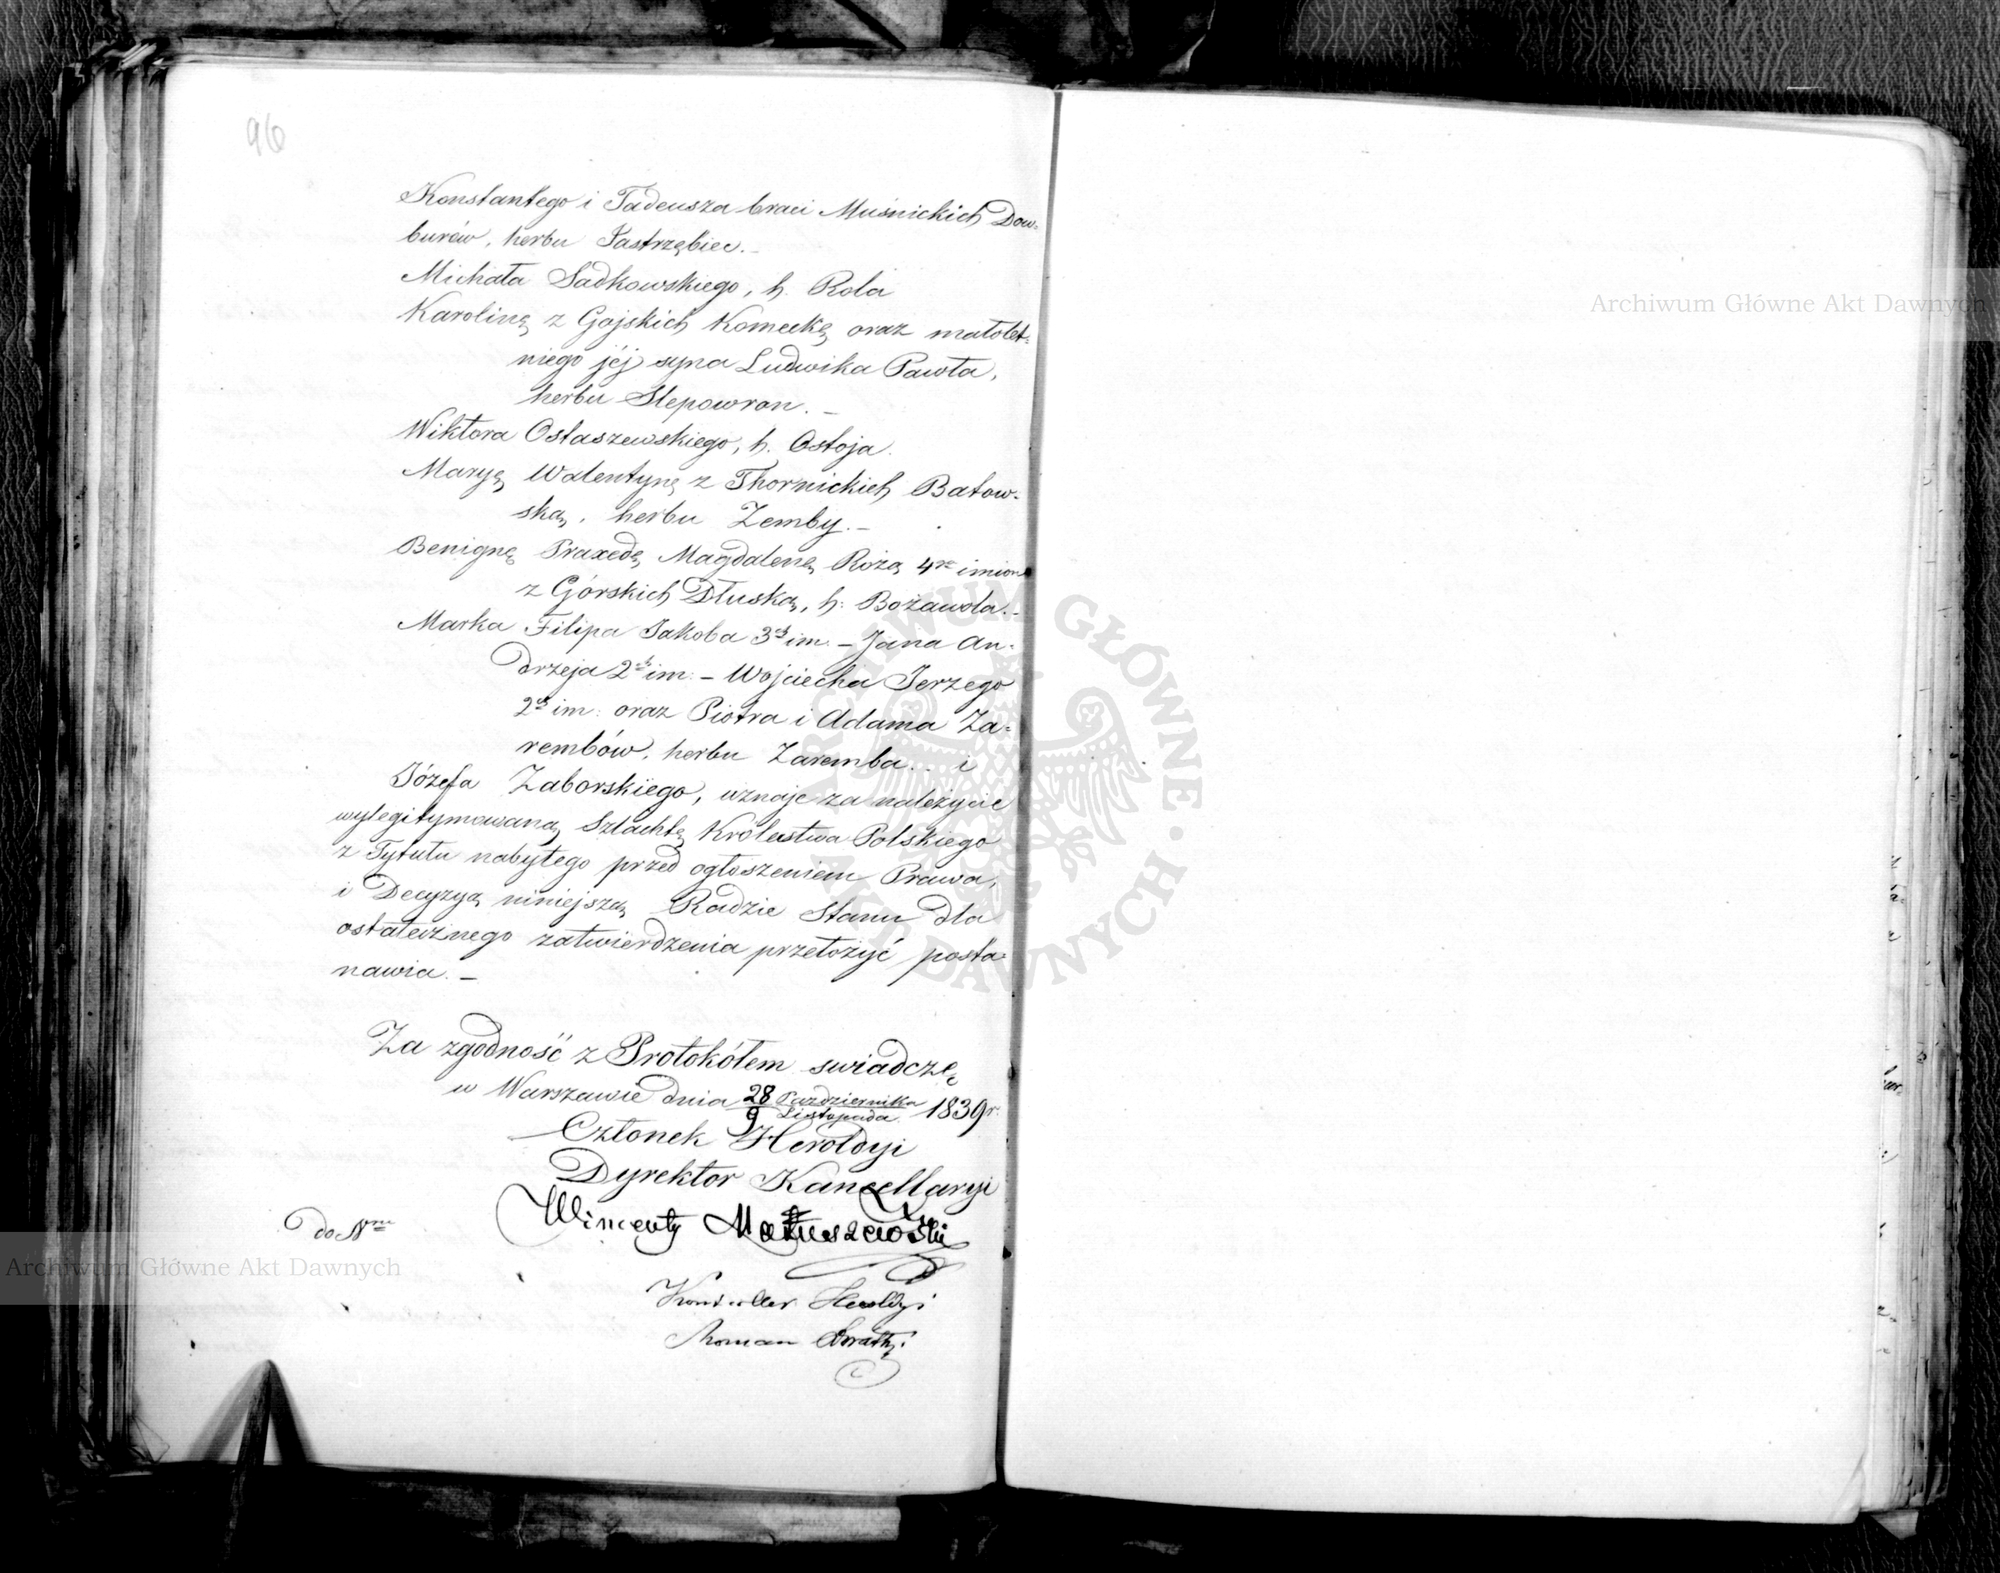 96
Konstantego i Tadeusza braci Muśnickich Dow-
burów, herbu Jastrzębiec. –
Michała Sadkowskiego, h. Rola
Karolinę z Gojskich Komecką oraz małolet-
niego jéj syna Ludwika Pawła,
herbu Slepowron. –
Wiktora Ostaszewskiego, h. Ostoja.
Maryą Walentynę z Thornickich Batow-
ską, herbu Zemby. –
Benignę Praxedę Magdalenę Rożą 4re imion
z Górskich Dłuską, h. Bożawola. –
Marka Filipa Jakoba 3ch im. – Jana An-
drzeja 2ch im. – Wojciecha Jerzego
2ch im: oraz Piotra i Adama Za-
rembów, herbu Zaremba. . i
Józefa Zaborskiego, uznaje za należycie
wylegitymowaną Szlachtę Królestwa Polskiego
z Tytułu nabytego przed ogłoszeniem Prawa,
i Decyzyą niniejszą Radzie Stanu dla
ostatecznego zatwierdzenia przełożyć posta-
nawia. –
Za zgodność z Protokółem swiadczę
w Warszawie dnia 28 Października
9 Listopada 1839 r.
Członek Heroldyi
Dyrektor Kancellaryi
Wincenty Matuszewski
do Nru
Kontroller Heroldyi
Roman
Archiwum Główne Akt Dawnych
Archiwum Główne Akt Dawnych
ARCHIWUM GŁÓWNE AKT DAWNYCH